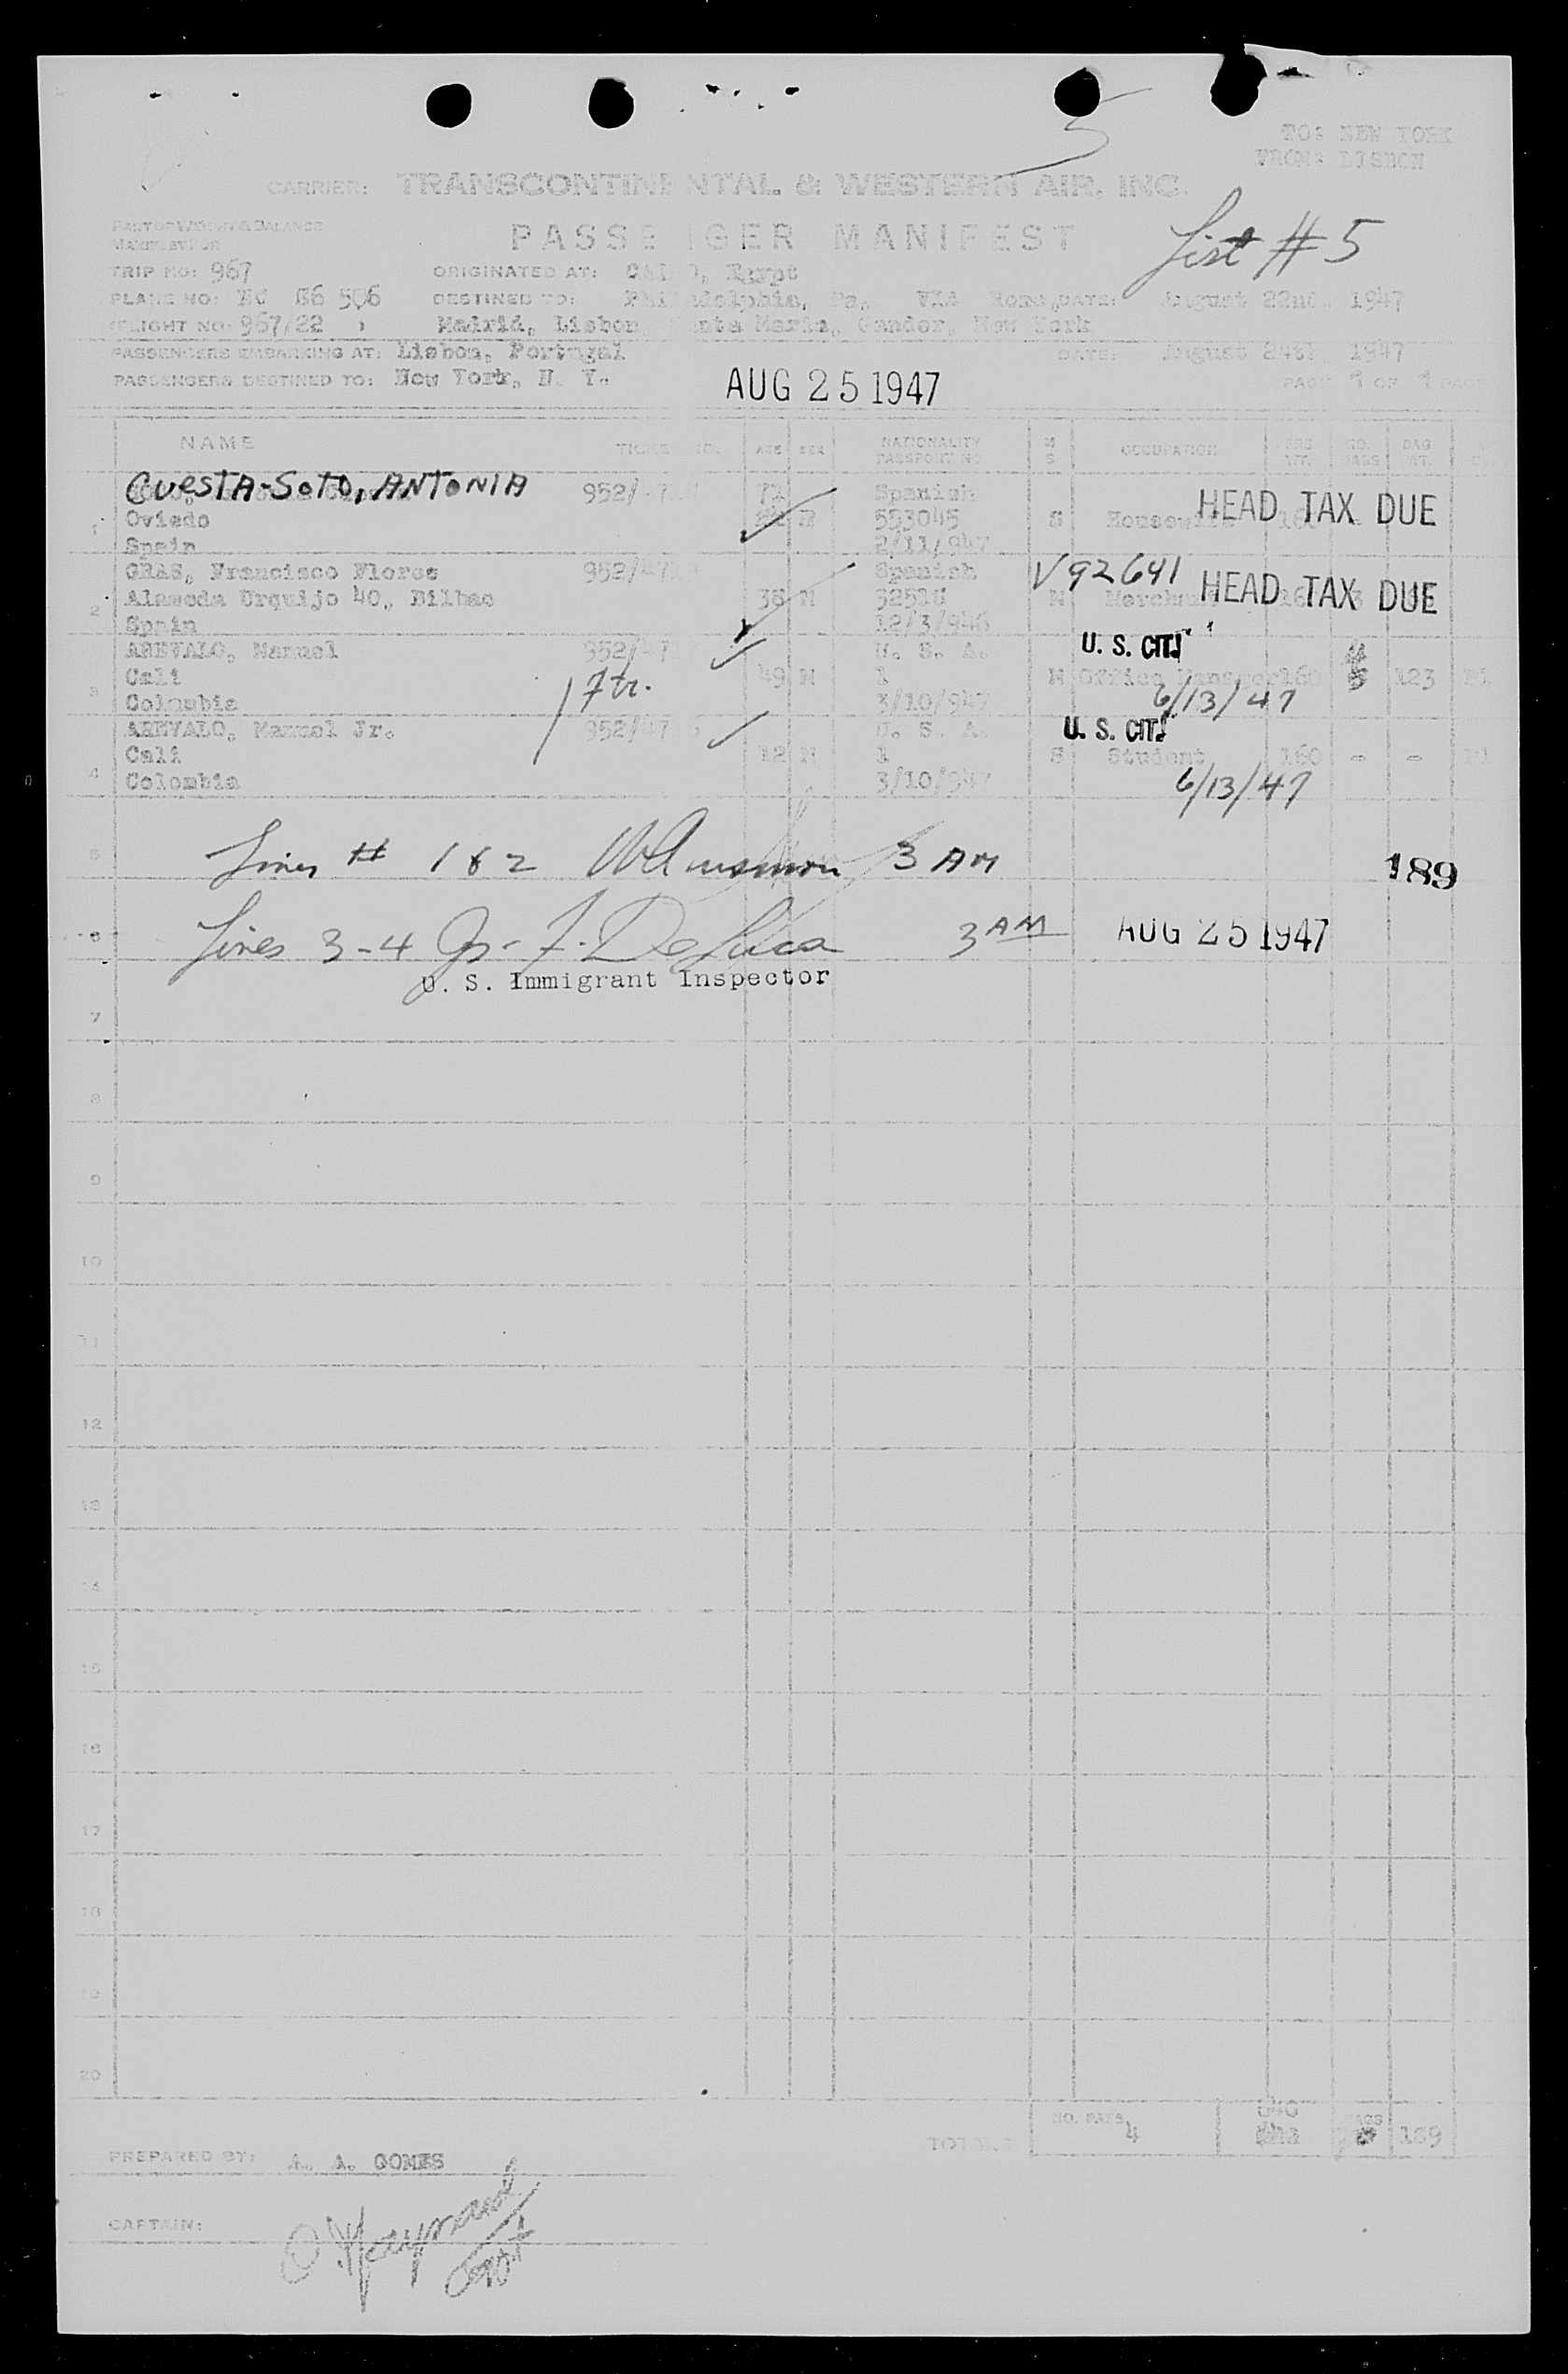 5
TO: NEW YORK
FROM: LISBON
CARRIER: TRANSCONTINENTAL & WESTERN AIR, INC.
PASSENGER MANIFEST
List #5
TRIP NO: 967 ORIGINATED AT: CAIRO, Egypt
PLANE NO: NC 86 506 DESTINED TO: Philadelphia, Pa. VIA Rome, DATE: August 22nd. 1947
FLIGHT NO: 967/22 Madrid, Lisbon, Santa Maria, Gander, New York
PASSENGERS EMBARKING AT: Lisbon, Portugal DATE: August 24th 1947
PASSENGERS DESTINED TO: New York, N. Y. PAGE 1 OF 1 PAGE
AUG 25 1947
NAME TICKET NO. AGE SEX NATIONALITY PASSPORT NO. M S OCCUPATION PRS WT. NO. BAGS BAG WT.
CUESTA-SOTO, ANTONIA 952/ Spanish HEAD TAX DUE
1 Oviedo 553045 S Housewife 160
Spain 2/11/947
GRAS, Francisco Flores 952/47 Spanish V92641 HEAD TAX DUE
2 Alameda Urquijo 40, Bilbao 38 M M Merchant 160
Spain 12/3/946
AREVALO, Manuel 952/47 U. S. A. U. S. CIT.
3 Cali 49 M 1 M Office Manager 160 5 123
Colombia 17tr. 3/10/947 6/13/47
AREVALO, Manuel Jr. 952/47 U. S. A. U. S. CIT.
Cali 12 M 1 S Student 160 - -
4 Colombia 3/10/947 6/13/47
5 Lines # 1 & 2 3 AM 189
6 Lines 3-4 F. DeLuca 3 AM AUG 25 1947
U. S. Immigrant Inspector
7
8
9
10
11
12
13
14
15
16
17
18
19
20
TOTALS NO. PASS. 4 189
PREPARED BY: A. A. GOMES
CAPTAIN: